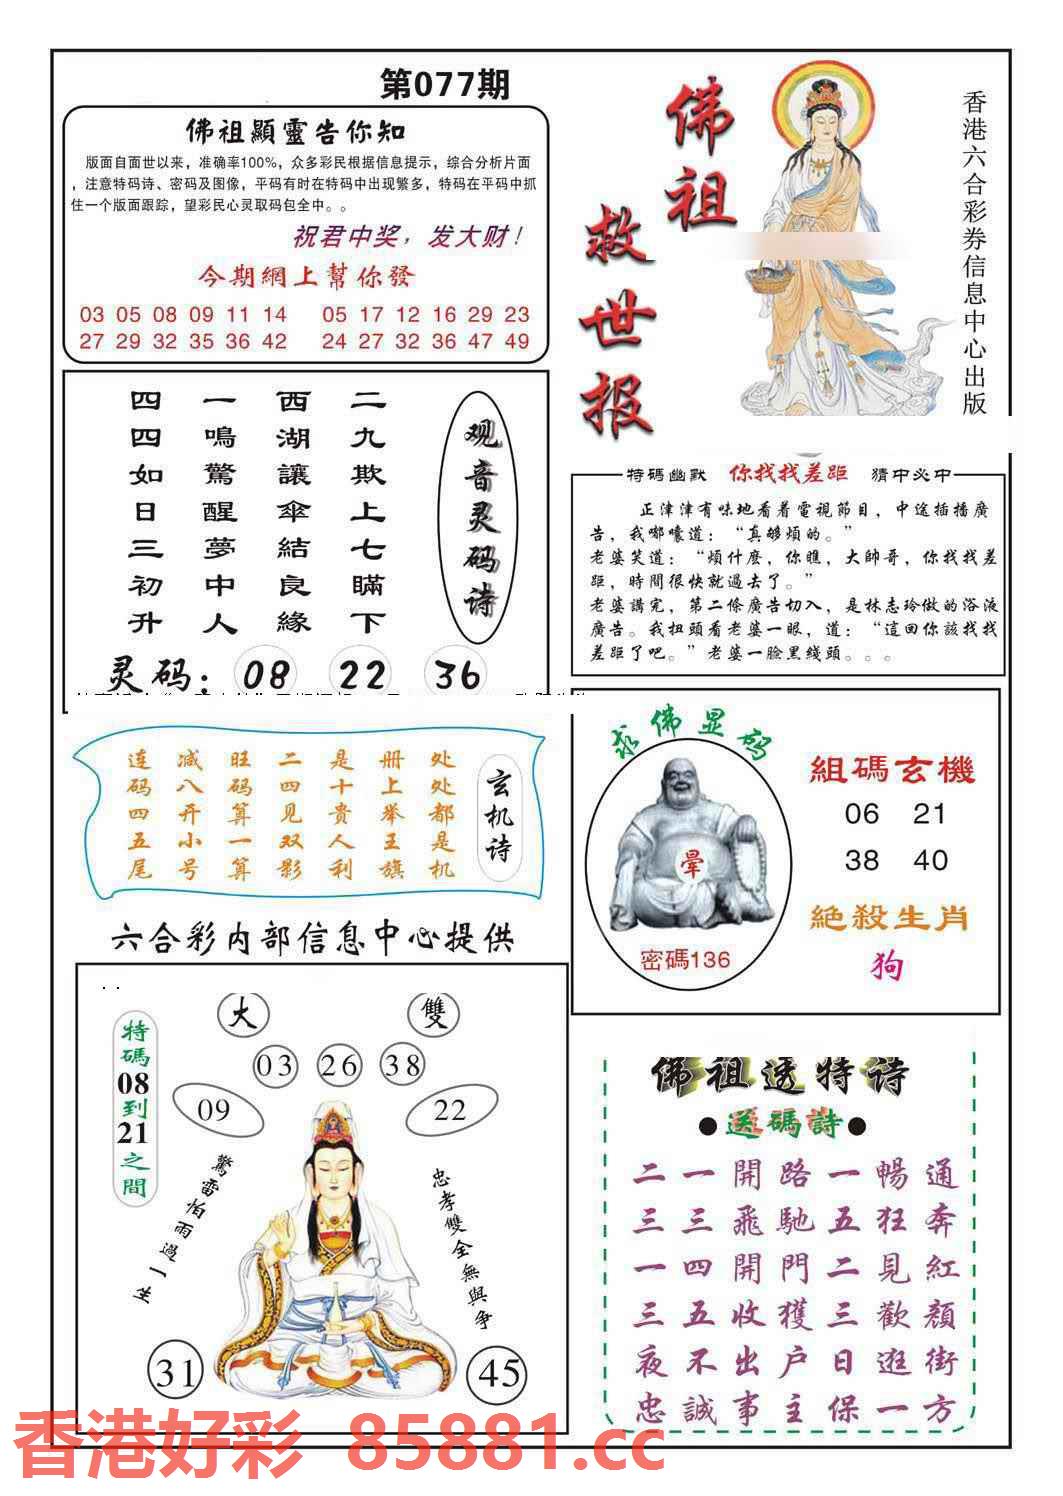 第077期
佛祖顯靈告你知
版面自面世以来，准确率100%，众多彩民根据信息提示，综合分析片面
，注意特码诗、密码及图像，平码有时在特码中出现繁多，特码在平码中抓
住一个版面跟踪，望彩民心灵取码包全中。。
祝君中奖，发大财！
今期網上幫你發
03 05 08 09 11 14 05 17 12 16 29 23
27 29 32 35 36 42 24 27 32 36 47 49
佛祖
救世报
香港六合彩券信息中心出版
观音灵码诗
二九欺上七瞞下
西湖讓傘結良緣
一鳴驚醒夢中人
四四如日三初升
灵码：08 22 36
特碼幽默 你找找差距 猜中必中
正津津有味地看着電視節目，中途插播廣
告，我嘟嚷道：“真够煩的。”
老婆笑道：“煩什麼，你瞧，大帥哥，你找找差
距，時間很快就過去了。”
老婆講完，第二條廣告切入，是林志玲做的浴液
廣告。我扭頭看老婆一眼，道：“這回你該找找
差距了吧。”老婆一臉黑綫頭。。。
玄机诗
处处都是机
册上举王旗
是十贵人利
二四见双影
旺码算一算
减八开小号
连码四五尾
求佛显码
晕
密碼136
組碼玄機
06 21
38 40
絶殺生肖
狗
六合彩内部信息中心提供
大 雙
03 26 38
09 22
特碼08到21之間
驚雷怕雨過一生
忠孝雙全無與争
31 45
佛祖透特诗
●送碼詩●
二一開路一暢通
三三飛馳五狂奔
一四開門二見紅
三五收獲三歡顏
夜不出户日逛街
忠誠事主保一方
香港好彩 85881.cc